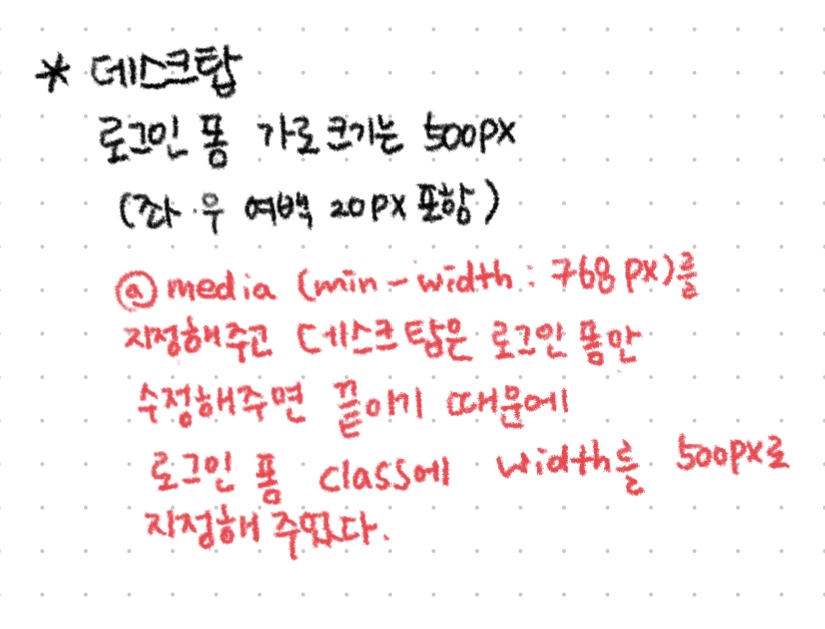 * 데스크탑
로그인 폼 가로크기는 500px
(좌·우 여백 20px 포함)
@media (min-width : 768px)를
지정해주고 데스크탑은 로그인 폼만
수정해주면 끝이기 때문에
로그인 폼 class에 width를 500px로
지정해 주었다.